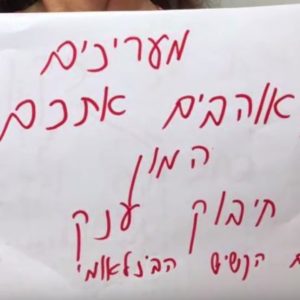 מעריכים
אוהבים אתכם
המון
חיבוק ענק
הקשיש הבינלאומי